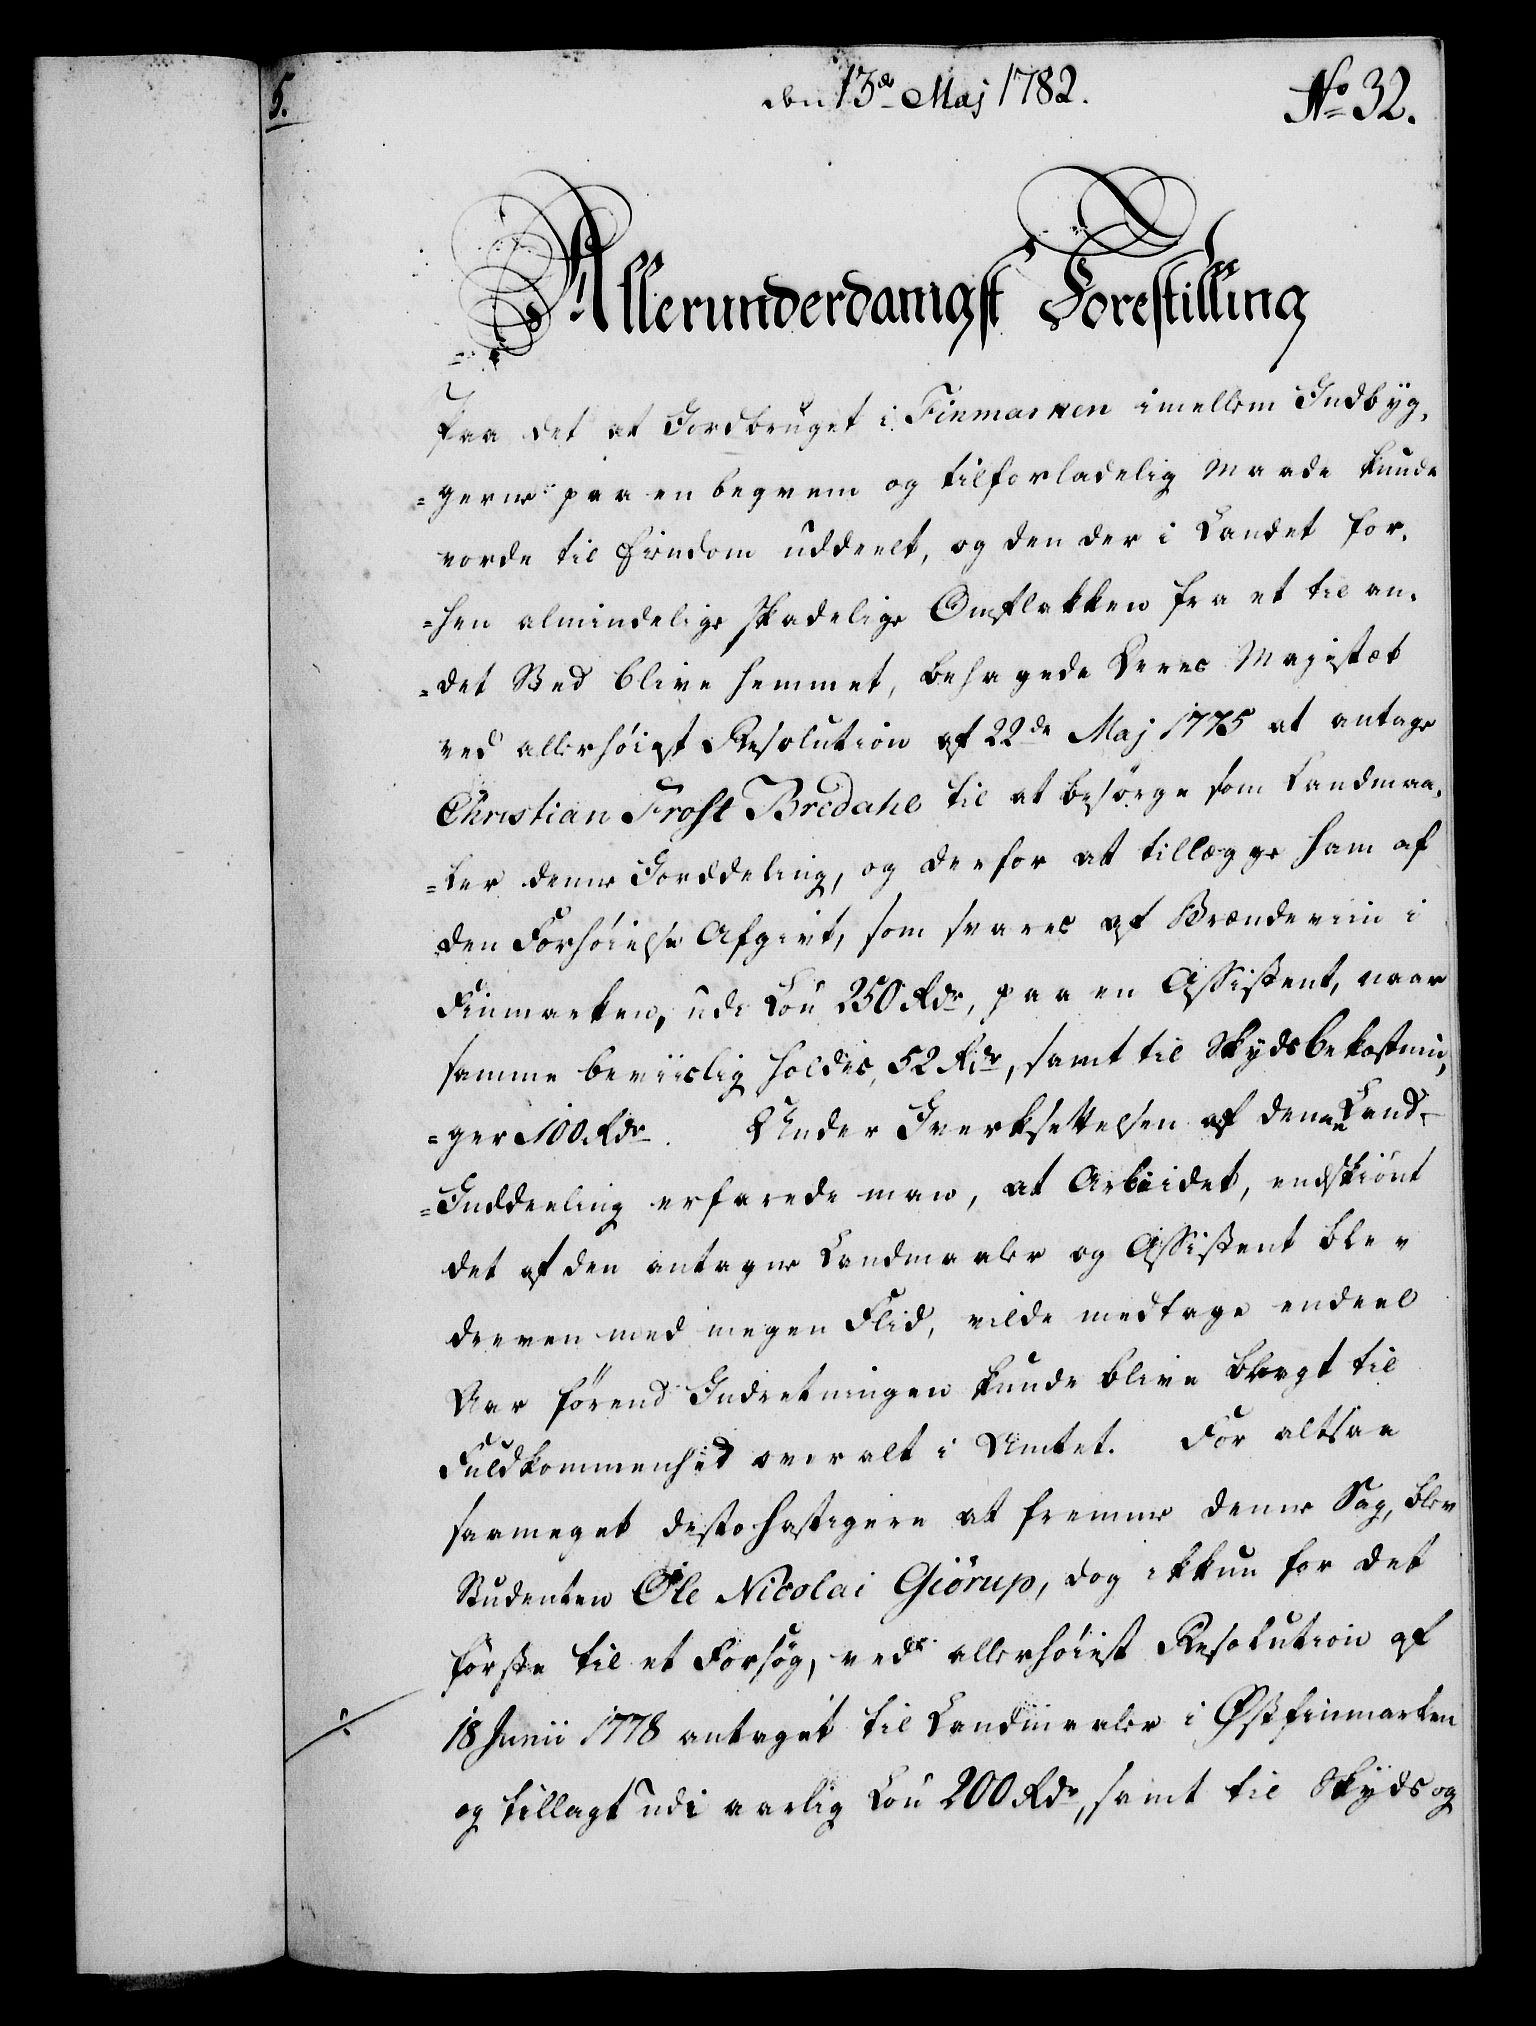 5.
den 13de Maj 1782.
No 32.
Allerunderdanigst Forestilling
Paa det at Jordbruget i Finmarken imellem Indbÿg-
=gerne paa en beqvem og tilforladelig Maade kunde
vorde til Eiendom uddeelt, og den der i Landet for-
=hen almindelige skadelige Omflakken fra et til an-
=det Sted blive hemmet, behagede Deres Majestæt
ved allerhöigst Resolution af 22de Maj 1775 at antage
Christian Frost Bredahl til at besörge som Landmaa-
=ler denne Jorddeling, og derfor at tillægge ham af
den Forhöielse Afgivt, som svares af Brændeviin i
Finmarken, udi Lön 250 Rdr, paa en Assistent, naar
samme beviislig holdes, 52 Rdr, samt til Skydsbekostnin-
=ger 100 Rdr. Under Iverksettelsen af denne Land-
=Inddeeling erfarede man, at Arbeidet, endskiönt
det af den antagne Landmaaler og Assistent blev
dreven med megen Flid, vilde medtage endeel
Aar förend Indretningen kunde blive bragt til
Fuldkommenhed overalt i Amtet. For altsaa
saameget desto hastigere at fremme denne Sag, blev
Studenten Ole Nicolai Giörup, dog ikkun for det
förste til et Forsög, ved allerhöiest Resolution af
18 Junii 1778 antaget til Landmaaler i Østfinmarken
og tillagt udi aarlig Lön 200 Rdr, samt til Skÿds og